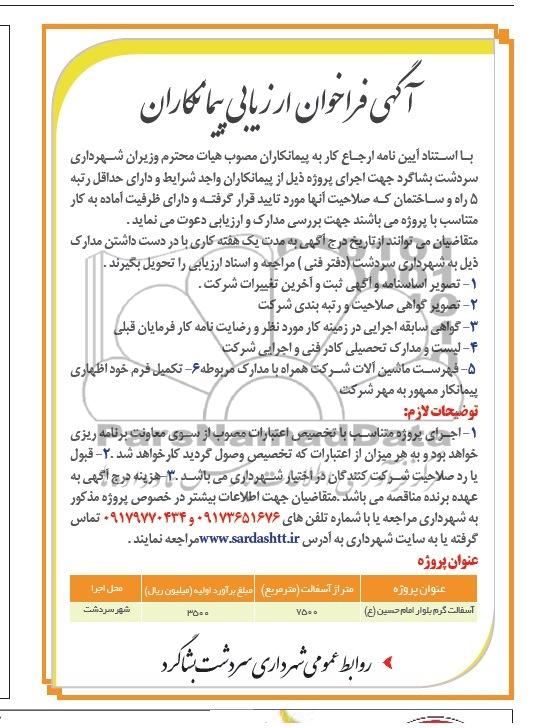 آگهی فراخوان ارزیابی پیمانکاران
با استناد آیین نامه ارجاع کار به پیمانکاران مصوب هیات محترم وزیران شهرداری
سردشت بشاگرد جهت اجرای پروژه ذیل از پیمانکاران واجد شرایط و دارای حداقل رتبه
۵ راه و ساختمان که صلاحیت آنها مورد تایید قرار گرفته و دارای ظرفیت آماده به کار
متناسب با پروژه می باشند جهت بررسی مدارک و ارزیابی دعوت می نماید .
متقاضیان می توانند ازتاریخ درج آگهی به مدت یک هفته کاری با در دست داشتن مدارک
ذیل به شهرداری سردشت (دفتر فنی ) مراجعه و اسناد ارزیابی را تحویل بگیرند .
۱- تصویر اساسنامه و آگهی ثبت و آخرین تغییرات شرکت .
۲- تصویر گواهی صلاحیت و رتبه بندی شرکت
۳- گواهی سابقه اجرایی در زمینه کار مورد نظر و رضایت نامه کار فرمایان قبلی
۴- لیست و مدارک تحصیلی کادر فنی و اجرایی شرکت
۵- فهرست ماشین آلات شرکت همراه با مدارک مربوطه۶- تکمیل فرم خود اظهاری
پیمانکار ممهور به مهر شرکت
توضیحات لازم:
۱- اجرای پروژه متناسب با تخصیص اعتبارات مصوب از سوی معاونت برنامه ریزی
خواهد بود و به هر میزان از اعتبارات که تخصیص وصول گردید کارخواهد شد .۲- قبول
یا رد صلاحیت شرکت کنندگان در اختیار شهرداری می باشد .۳-هزینه درج آگهی به
عهده برنده مناقصه می باشد .متقاضیان جهت اطلاعات بیشتر در خصوص پروژه مذکور
به شهرداری مراجعه یا با شماره تلفن های ۰۹۱۷۳۶۵۱۶۷۶ و ۰۹۱۷۹۷۷۰۴۳۴ تماس
گرفته یا به سایت شهرداری به آدرس www.sardashtt.ir مراجعه نمایند .
عنوان پروژه
عنوان پروژه متراژ آسفالت (مترمربع) مبلغ برآورد اولیه (میلیون ریال) محل اجرا
آسفالت گرم بلوار امام حسین (ع) ۷۵۰۰ ۳۵۰۰ شهر سردشت
روابط عمومی شهرداری سردشت بشاگرد